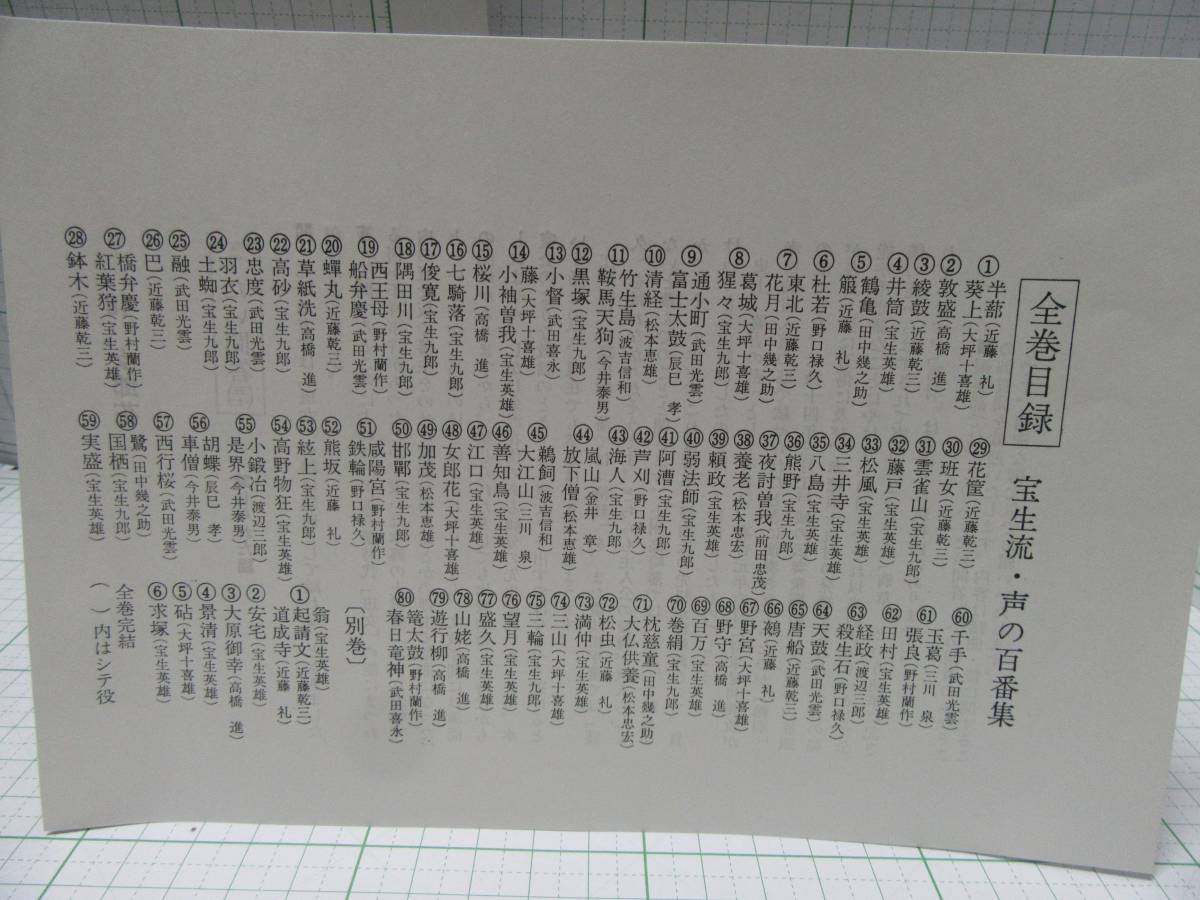 全巻目録 宝生流・声の百番集
①半蔀(近藤 礼)
葵上(大坪十喜雄)
②敦盛(高橋 進)
③綾鼓(近藤乾三)
④井筒(宝生英雄)
⑤鶴亀(田中幾之助)
箙(近藤 礼)
⑥杜若(野口禄久)
⑦東北(近藤乾三)
花月(田中幾之助)
⑧葛城(大坪十喜雄)
猩々(宝生九郎)
⑨通小町(武田光雲)
富士太鼓(辰巳 孝)
⑩清経(松本恵雄)
⑪竹生島(波吉信和)
鞍馬天狗(今井泰男)
⑫黒塚(宝生九郎)
⑬小督(武田喜永)
⑭藤(大坪十喜雄)
小袖曽我(宝生英雄)
⑮桜川(高橋 進)
⑯七騎落(宝生九郎)
⑰俊寛(宝生九郎)
⑱隅田川(宝生九郎)
⑲西王母(野村蘭作)
船弁慶(武田光雲)
⑳蟬丸(近藤乾三)
㉑草紙洗(高橋 進)
㉒高砂(宝生九郎)
㉓忠度(武田光雲)
㉔羽衣(宝生九郎)
土蜘(宝生九郎)
㉕融(武田光雲)
㉖巴(近藤乾三)
㉗橋弁慶(野村蘭作)
紅葉狩(宝生英雄)
㉘鉢木(近藤乾三)
㉙花筐(近藤乾三)
㉚班女(近藤乾三)
㉛雲雀山(宝生九郎)
㉜藤戸(宝生英雄)
㉝松風(宝生英雄)
㉞三井寺(宝生英雄)
㉟八島(宝生英雄)
㊱熊野(宝生九郎)
㊲夜討曽我(前田忠茂)
㊳養老(松本忠宏)
㊴頼政(宝生英雄)
㊵弱法師(宝生九郎)
㊶阿漕(宝生九郎)
㊷芦刈(野口禄久)
㊸海人(宝生九郎)
㊹嵐山(金井 章)
放下僧(松本恵雄)
㊺鵜飼(波吉信和)
大江山(三川 泉)
㊻善知鳥(宝生英雄)
㊼江口(宝生英雄)
㊽女郎花(大坪十喜雄)
㊾加茂(松本恵雄)
㊿邯鄲(宝生九郎)
51咸陽宮(野村蘭作)
鉄輪(野口禄久)
52熊坂(近藤 礼)
53絃上(宝生九郎)
54高野物狂(宝生英雄)
55小鍛冶(渡辺三郎)
是界(今井泰男)
56胡蝶(辰巳 孝)
車僧(今井泰男)
57西行桜(武田光雲)
58鷺(田中幾之助)
国栖(宝生九郎)
59実盛(宝生英雄)
60千手(武田光雲)
61玉葛(三川 泉)
張良(野村蘭作)
62田村(宝生英雄)
63経政(渡辺三郎)
殺生石(野口禄久)
64天鼓(武田光雲)
65唐船(近藤乾三)
66鵺(近藤 礼)
67野宮(大坪十喜雄)
68野守(高橋 進)
69百万(宝生英雄)
70巻絹(宝生九郎)
71枕慈童(田中幾之助)
大仏供養(松本忠宏)
72松虫(近藤 礼)
73満仲(宝生英雄)
74三山(大坪十喜雄)
75三輪(宝生九郎)
76望月(宝生英雄)
77盛久(宝生英雄)
78山姥(高橋 進)
79遊行柳(高橋 進)
80篭太鼓(野村蘭作)
春日竜神(武田喜永)
〔別巻〕
翁(宝生英雄)
①起請文(近藤乾三)
道成寺(近藤 礼)
②安宅(宝生英雄)
③大原御幸(高橋 進)
④景清(宝生英雄)
⑤砧(大坪十喜雄)
⑥求塚(宝生英雄)
全巻完結
( )内はシテ役